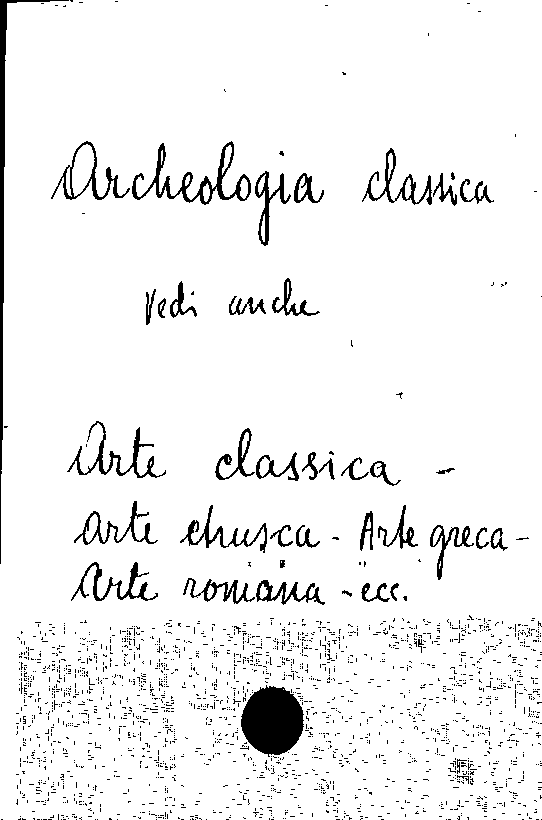 Archeologia classica
Vedi anche
Arte classica -
Arte etrusca - Arte greca -
Arte romana - ecc.